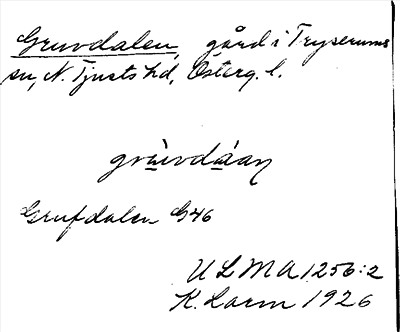 Gruvdalen, gård i Tryserums
sn, N. Tjusts hd, Österg. l.
grùvdàan
Grufdalen G46
ULMA 1256:2
K. Lorm 1926